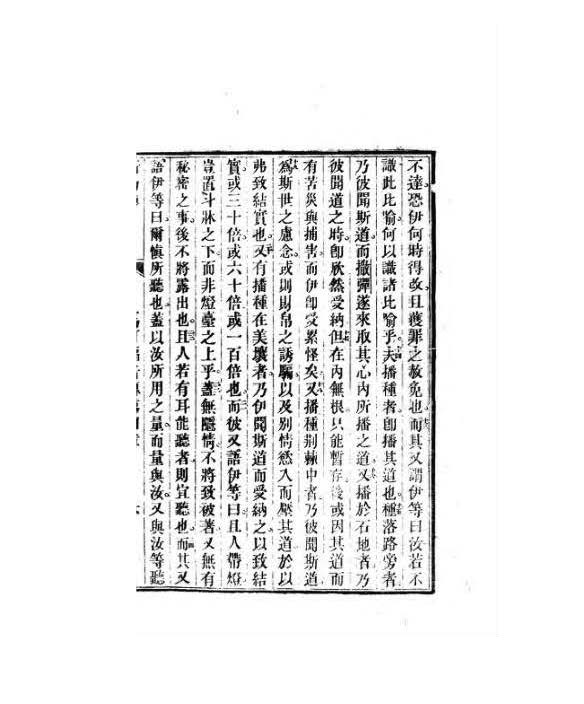 不達恐伊何時得改且獲罪之赦免也而其又謂伊等曰汝若不
識此比喻何以識諸比喻乎夫播種者卽播其道也種落路旁者
乃彼聞斯道而撒彈遂來取其心內所播之道又播於石地者乃
彼聞道之時卽欣然受納但在內無根只能暫存後或因其道而
有苦災與捕害而伊卽受累怪矣又播種荆棘中者乃彼聞斯道
為斯世之慮念或則財帛之誘騙以及別情慾入而壓其道於以
弗致結實也又有播種在美壤者乃伊聞斯道而受納之以致結
實或三十倍或六十倍或一百倍也而彼又語伊等曰且人帶燈
豈置斗牀之下而非燈臺之上乎蓋無隱情不將致彼著又無有
秘密之事後不將露出也且人若有耳能聽者則宜聽也而其又
語伊等曰爾慎所聽也蓋以汝所用之量而量與汝又與汝等聽